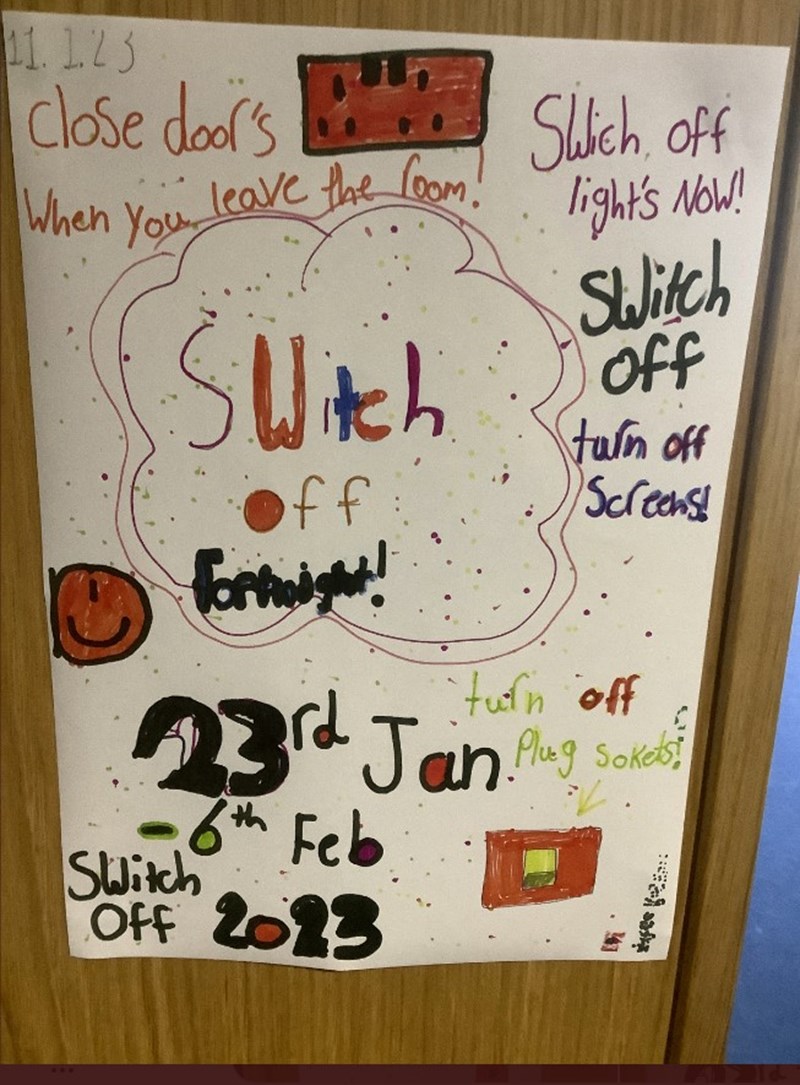 11.1.23
Close door's
When you leave the room!
Swich off
light's NOW!
Switch
off
turn off
Screens!
Switch
off
Fortnight!
23rd Jan
- 6th Feb
2023
turn off
Plug sokets!
Switch
Off